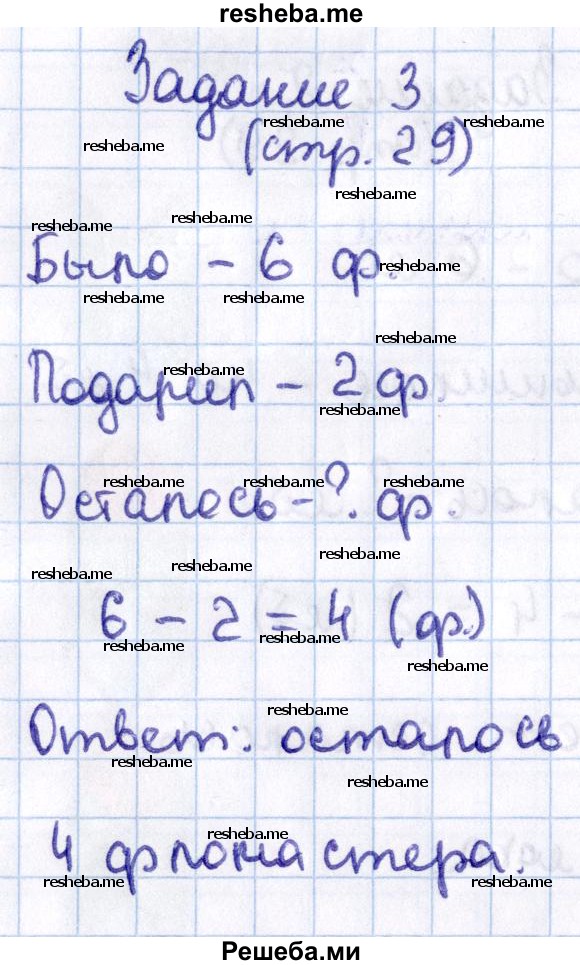 resheba.me
Задание 3
resheba.me resheba.me
resheba.me (стр. 29)
resheba.me
resheba.me resheba.me
Было - 6 ф. resheba.me
resheba.me resheba.me
resheba.me
resheba.me
Подарил - 2 ф.
resheba.me
resheba.me resheba.me resheba.me
Осталось - ? ф.
resheba.me
resheba.me resheba.me
6 - 2 = 4 (ф.)
resheba.me resheba.me
resheba.me
resheba.me
Ответ: осталось
resheba.me
resheba.me
resheba.me
4 фломастера.
resheba.me resheba.me
Решеба.ми